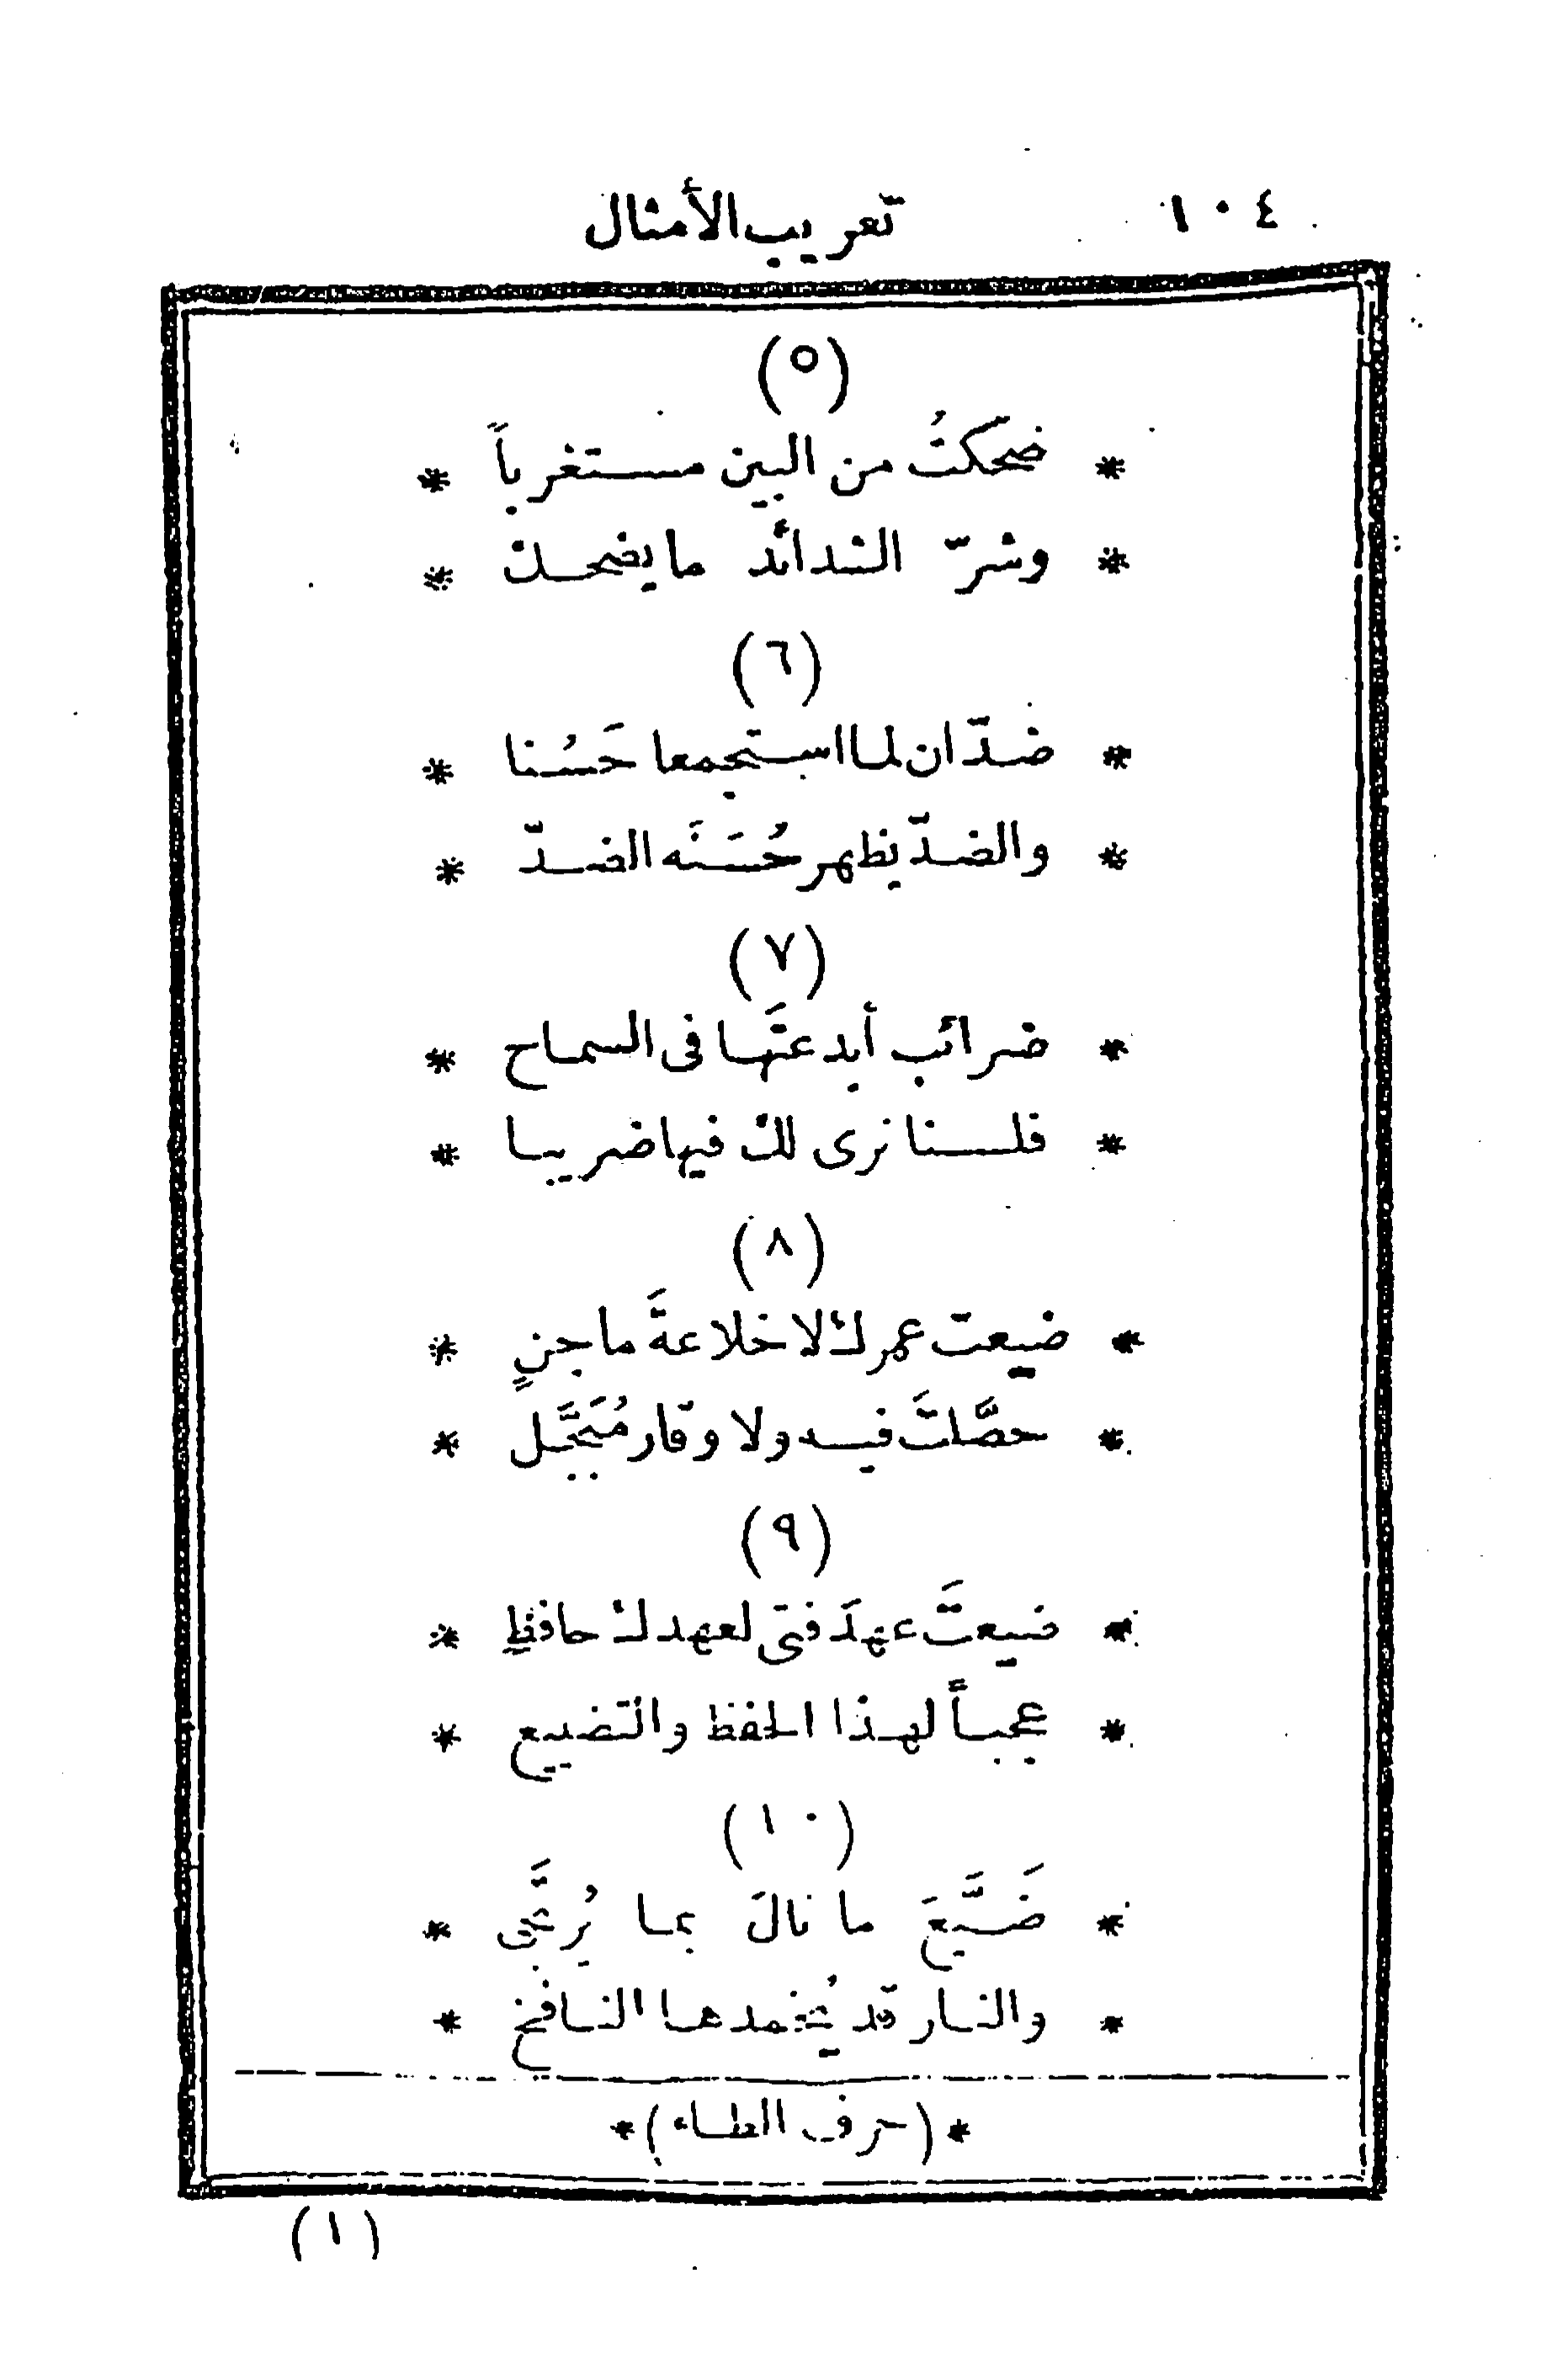 ١٠٤ تعريب الأمثال
(٥)
* ضحكتُ من البين مستغرباً *
* وشرّ الشدائد ما يضحك *
(٦)
* ضدّان لما استجمعا حَسُنا *
* والضدّ يظهر حُسنَه الضدّ *
(٧)
* ضرائب أبدعتَها في السماح *
* فلسنا نرى لك فيها ضريبا *
(٨)
* ضيعت عمرك لا خلاعةَ ماجنٍ *
* حصَّلتَ فيه ولا وقار مُبَجَّل *
(٩)
* ضيعتَ عهدَ فتى لعهدك حافظٍ *
* عجباً لهذا الحفظ والتضييع *
(١٠)
* ضَيَّعَ ما نالَ بما يُرتَجَّى *
* والنار قد يُخمدها النافخ *
*(حرف الطاء)*
(١)